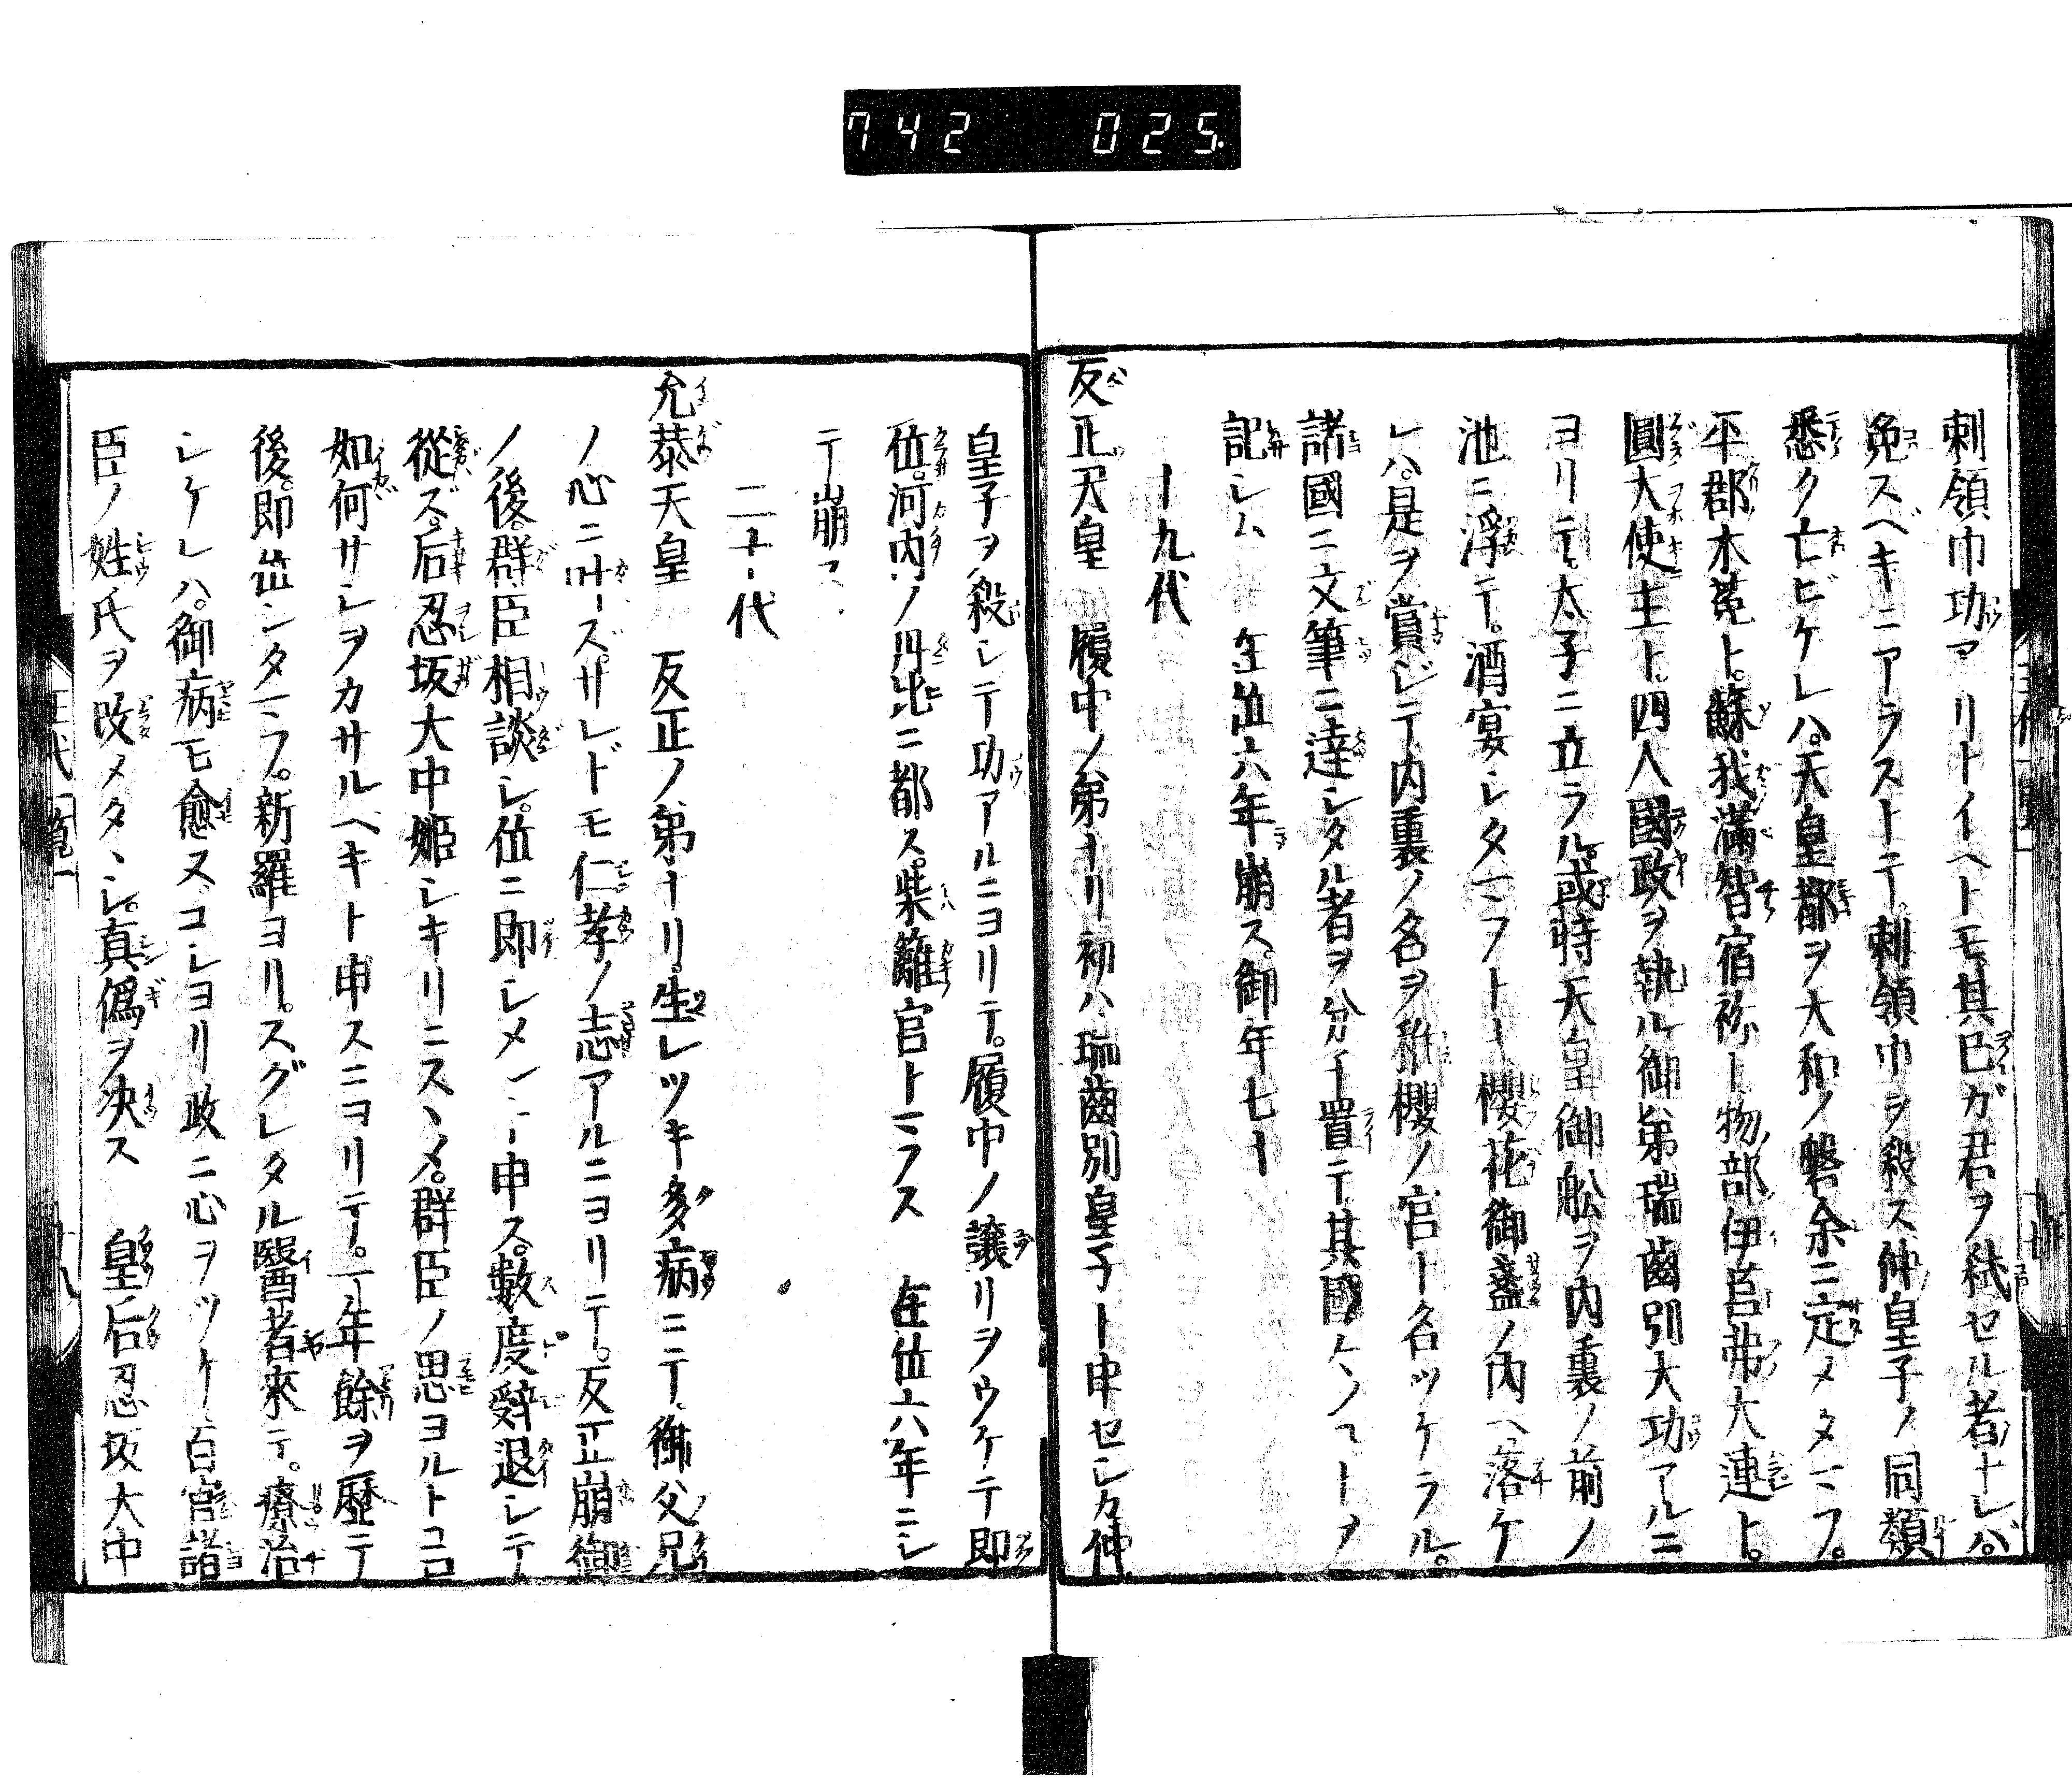 742 025.
刺領巾功アリトイヘトモ其已ガ君ヲ弑セル者ナレバ。
免スベキニアラストテ。刺領巾ヲ殺ス仲皇子ノ同類
悉ク亡ビケレハ。天皇都ヲ大和ノ磐余ニ定メタマフ。
平郡木菟ト。蘇我滿智宿祢ト物部伊莒弗大連ト。
圓大使主ト。四人國政ヲ執ル御弟瑞齒別大功アルニ
ヨリテ。太子ニ立ラル或時天皇御舩ヲ内裏ノ前ノ
池ニ浮テ。酒宴シタマフトキ櫻花御盞ノ内ヘ落ケ
レハ。是ヲ賞シテ内裏ノ名ヲ稚櫻ノ宮ト名ツケラル。
諸國ニ文筆ニ達シタル者ヲ分チ置テ其國ケンノコトヲ
記シム 在位六年崩ス。御年七十
十九代
反正天皇 履中ノ弟ナリ初ハ瑞齒別皇子ト申セシカ仲
皇子ヲ殺シテ功アルニヨリテ。履中ノ讓リヲウケテ即
位。河内ノ丹比ニ都ス。柴籬宮トマフス 在位六年ニシ
テ崩ス
二十代
允恭天皇 反正ノ弟ナリ。生レツキ多病ニテ。御父兄
ノ心ニ叶ハズ。サレドモ仁孝ノ志アルニヨリテ。反正崩御
ノ後。群臣相談シ。位ニ即シメント申ス。數度辞退シテ
從ズ。后忍坂大中姫シキリニスヽメ。群臣ノ思ヨルトコロ
如何サレヲカサルヘキト申スニヨリテ。一年餘ヲ歴テ
後。即位シタマフ。新羅ヨリ。スグレタル醫者來テ。療治
シケレハ。御病モ愈ヌコレヨリ政ニ心ヲツケ百官諸
臣ノ姓氏ヲ改メタヽシ。真僞ヲ决ス 皇后忍坂大中
王代一覧一
十八